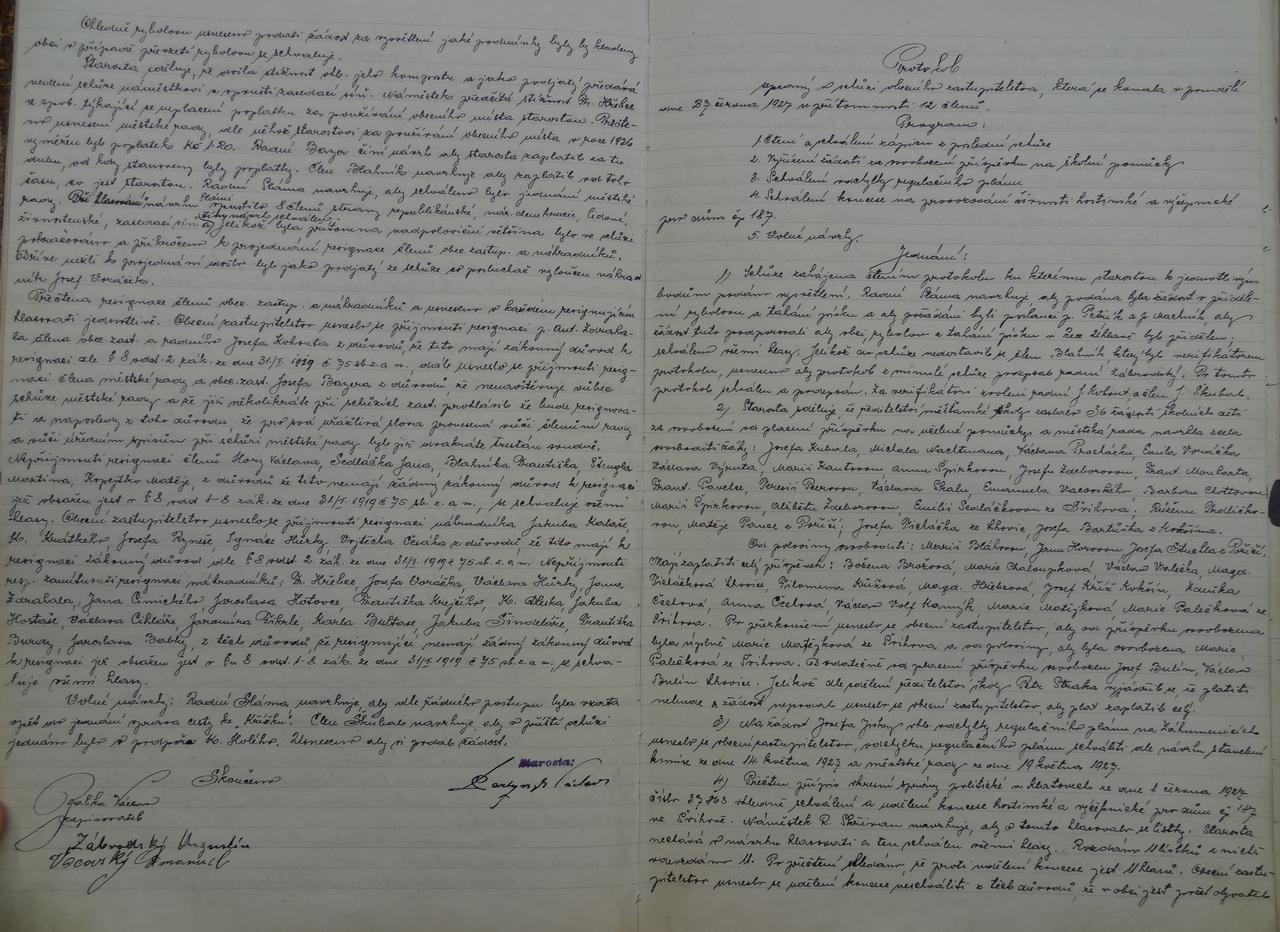 Ohledně rybolovu usneseno podati žádost za vysvětlení jaké podmínky byly by kladeny
obci v případě převzetí rybolovu se schvaluje.
Starosta sděluje, že došla stížnost ohl. jeho kompostu a jako podjatý předává
vedení schůze náměstkovi a opouští zasedací síň. Náměstek předčítá stížnost Fr. Hřebce
a spol. týkající se neplacení poplatku za používání obecního místa starostou.
no usnesení městské rady, dle něhož starostovi za používání obecního místa v roce 1926
vyměřen byl poplatek Kč 1.20. Radní Bazer činí návrh aby starosta zaplatil za tu
dobu, od kdy stanoveny byly poplatky. Člen Blahník navrhuje aby zaplatil od toho
času, co jest starostou. Radní Sláma navrhuje, aby schváleno bylo jednání městské
rady. návrhu Slámi opustilo 8 členů strany republikánské, nár. demokracie, lidové,
živnostenské, zasedací síň Jelikož byla přítomna nadpoloviční většina bylo ve schůzi
pokračováno a přikročeno k projednání resignace členů obec. zastup. a náhradníků.
Dříve nežli ku projednání došlo byl jako podjatý ze schůze co posluchač vyloučen náhrad
ník Josef Voráček.
Přečtena resignace členů obec. zastup. a náhradníků a usneseno o každém resignujícím
hlasovati jednotlivě. Obecní zastupitelstvo usneslo se přijmouti resignaci p. Ant. Zdraha-
la člena obec. zast. a radního Josefa Kohouta z důvodů, že tito mají zákonný důvod k
resignaci dle § 8 odst. 2 zák. ze dne 31/I. 1919 č 75 sb. z. a n., dále usneslo se přijmouti resig-
naci člena městské rady a obec. zast. Josefa Bazera z důvodů, že nenavštěvuje vůbec
schůze městské rady a že již několikráte při schůzích zast. prohlásil že bude resignova-
ti a naposledy z toho důvodu, že pro svá urážlivá slova pronesená vůči členům rady
a vůči úředním spisům při schůzi městské rady byl již dvakráte trestán soudně.
Nepřijmouti resignaci členů Hory Václava, Sedláčka Jana, Blahníka Františka, Štengla
Martina, Kopejtko Matěje, z důvodů že tito nemají žádný zákonný důvod k resignaci
jež obsažen jest v § 8 odst 1-8 zák. ze dne 31/I. 1919 č 75 sb. z. a n., se schvaluje všemi
hlasy. Obecní zastupitelstvo usneslo se přijmouti resignaci náhradníka Jakuba Kalaše,
K. Khátkého, Josefa Ryneše, Ignáce Hůrky, Vojtěcha Cesáka z důvodů že tito mají k
resignaci zákonný důvod dle § 8 odst. 2 zák. ze dne 31/I. 1919 č 75 sb. z. a n. Nepřijmouti
resp. zamítnouti resignaci náhradníků: Fr. Hřebce, Josefa Voráčka, Václava Hůrky, Jana
Zdrahala, Jana Cimického, Jaroslava Hotovce, Františka Krejčího, K. Jakuba
Hostaše, Václava Cihláře, Jaromíra Pikrle, Karla Jakuba Šindeláře, Františka
Jaroslava Babky, z těch důvodů, že resignující nemají žádný zákonný důvod
k resignaci jež obsažen jest v § 8 odst. 1-8 zák. ze dne 31/I. 1919 č 75 sb. z. a n., se schva-
luje všemi hlasy.
Volné návrhy: Radní Sláma navrhuje, aby dle řádného postupu byla vzata
opět do jednání oprava cesty ke „Křížku". Člen Škubal navrhuje, aby v příští schůzi
jednáno bylo o podpoře K. Holého. Usneseno aby si podal žádost.
Skončeno
Starosta:
Václav
zapisovatel
Zábrodský Augustin
Vacovský Emanuel
Protokol
sepsaný o schůzi obecního zastupitelstva, která se konala v pondělí
dne 27. června 1927 u přítomnosti 12 členů.
Program:
1. Čtení a schválení zápisu z poslední schůze
2. Vyřízení žádostí za osvobození příspěvku na školní pomůcky
3. Schválení odchylky regulačního plánu
4. Schválení koncese na provozování živnosti hostinské a výčepnické
pro dům čp 187.
5. Volné návrhy.
Jednání:
1) Schůze zahájena čtením protokolu ku kterému starostou k jednotlivým
bodům podáno vysvětlení. Radní Sláma navrhuje, aby podána byla žádost o příděle-
ní rybolovu a tahání písku a aby požádáni byli poslanci p. Petřík a p. Machník, aby
žádost tuto podporovali aby obci rybolov a tahání písku v řece Úhlavě byl přidělen,
schváleno všemi hlasy. Jelikož do schůze nedostavil se člen Blahník který byl verifikátorem
protokolu, usneseno aby protokol z minulé schůze podepsal radní Zábrodský. Po tomto
protokol schválen a podepsán. Za verifikátory zvoleni radní J. Kohout, a člen J. Škubal.
2) Starosta sděluje, že ředitelství měšťanské školy zaslalo 36 žádostí školních dětí
za osvobození od placení příspěvku na učebné pomůcky a městská rada navrhla zcela
osvoboditi žáky: Josefa Kubala, Michala Nachtmana, Václava Procházku, Emila Voráčka
Václava Výruta, Marii Kantorovou Annu Špirkovou, Josefu Zdeborovou, Frant. Moularta,
Frant. Pavelce, Teresii Bserovou, Václava Skalu, Emanuela Vacovského, Barboru Chottovou
Marii Špirkovou, Alžbětu Zdeborovou, Emilii Sedláčkovou ze Švihova; Růženu
vou, Matěje Pance z Poříč; Josefa Picháčka ze Lhovic, Josefa Bartůška z Kokšína.
Od poloviny osvoboditi: Marii Bláhovou, Janu Horovou, Josefa z Poříčí.
Mají zaplatiti celý příspěvek: Božena Brožová, Marie Chaloupková Václav Volička, Magd.
Picháčková Lhovice, Filomena Růžová, Magd. Hřebcová, Josef Kříž Kokšín, Zdenka
Čechová, Anna Čechová Václav Volf Kamýk Marie Matějková Marie Palečková ze
Švihova. Po přezkoušení usneslo se obecní zastupitelstvo, aby od příspěvku osvobozena
byla úplně Marie Matějková ze Švihova a od poloviny, aby byla osvobozena Marie
Palečková ze Švihova. Dodatečně od placení příspěvku osvobozen Josef Bulín, Václav
Bulín Lhovice. Jelikož dle sdělení ředitelství školy Petr Straka vyjádřil se, že platiti
nebude a žádost nepodal usneslo se obecní zastupitelstvo, aby plat zaplatil celý.
3) Na žádost Josefa ohl. odchylky regulačního plánu na Záhumenicích
usneslo se obecní zastupitelstvo, odchylku regulačního plánu schváliti dle návrhu stavební
komise ze dne 14. května 1927 a městské rady ze dne 19 května 1927.
4) Přečten přípis okresní správy politické v Klatovech ze dne 1 června 1927
číslo 37863 ohledně schválení a udělení koncese hostinské a výčepnické pro dům čp 187
ve Švihově. Náměstek R. Skřivan navrhuje, aby o tomto hlasovalo se lístky. Starosta
nechává o návrhu hlasovati a ten schválen všemi hlasy. Rozdáno 11 lístků z nichž
odevzdáno 11. Po přečtení shledáno, že proti udělení koncese jest 11 hlasů. Obecní zastu-
pitelstvo usneslo se udělení koncese neschváliti z těch důvodů, že v obci jest počet obyvatel